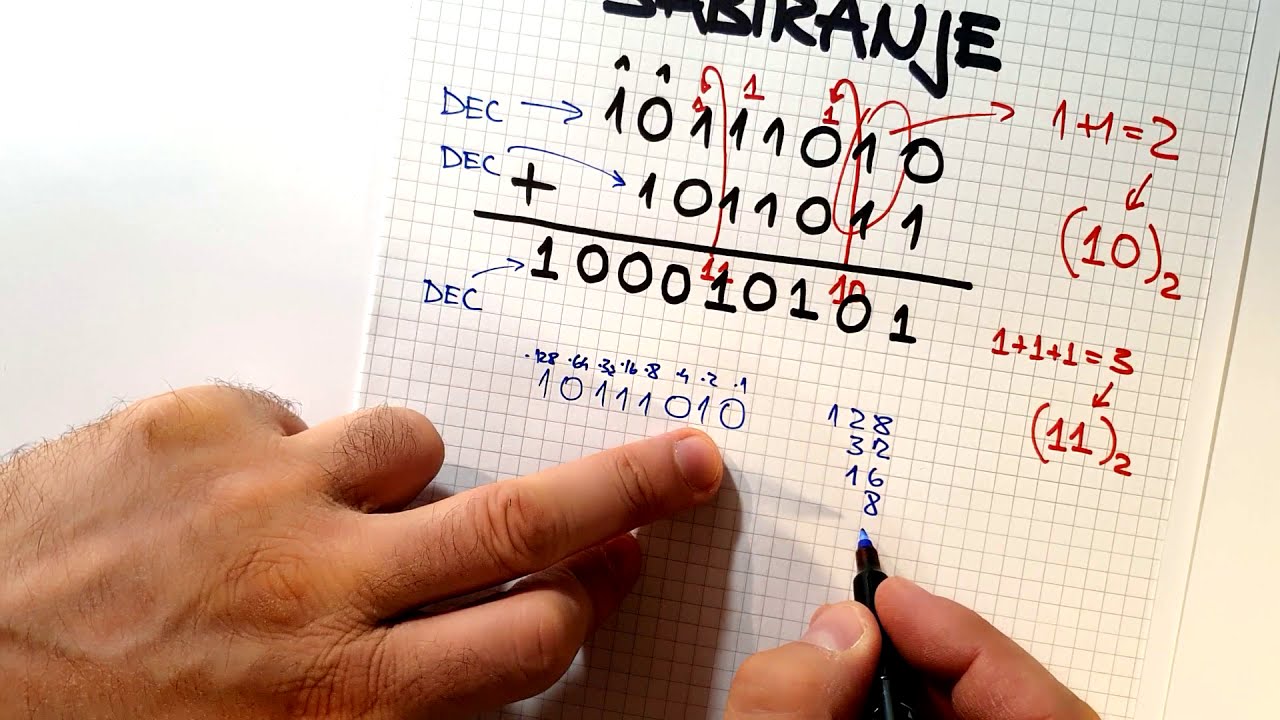 SABIRANJE
1 1 1 1 1
DEC → 10111010 → 1+1=2
DEC → + 1011011 (10)₂
11 10
DEC → 100010101
1+1+1=3
(11)₂
·128 ·64 ·32 ·16 ·8 ·4 ·2 ·1
10111010
128
32
16
8